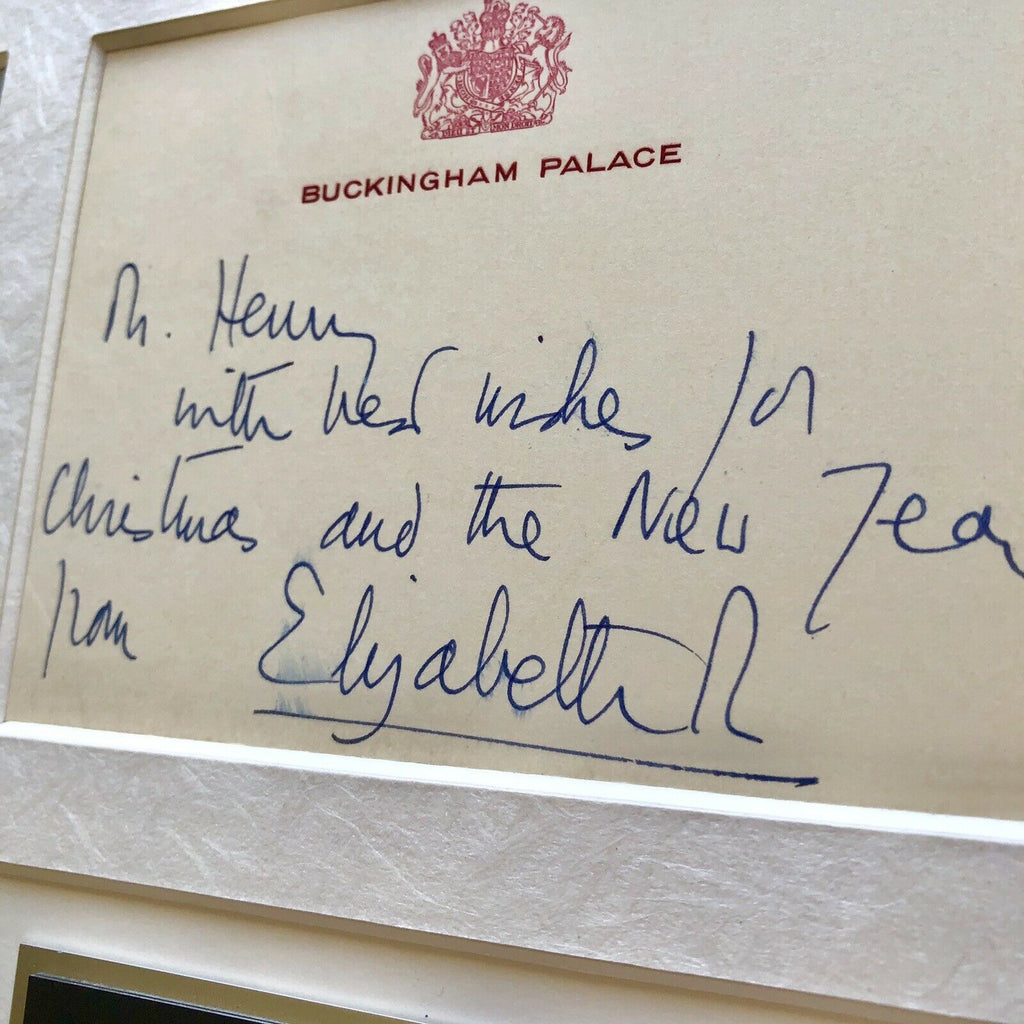 BUCKINGHAM PALACE
Mr. Henry
with best wishes for
Christmas and the New Year
from Elizabeth R